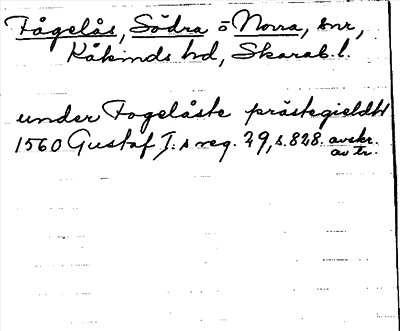 Fågelås, Södra o Norra, snr,
Kåkinds hd, Skarab. l.
under Fogelåste prästegieldtt
1560 Gustaf I:s reg. 29, s. 828. avskr.
av tr.